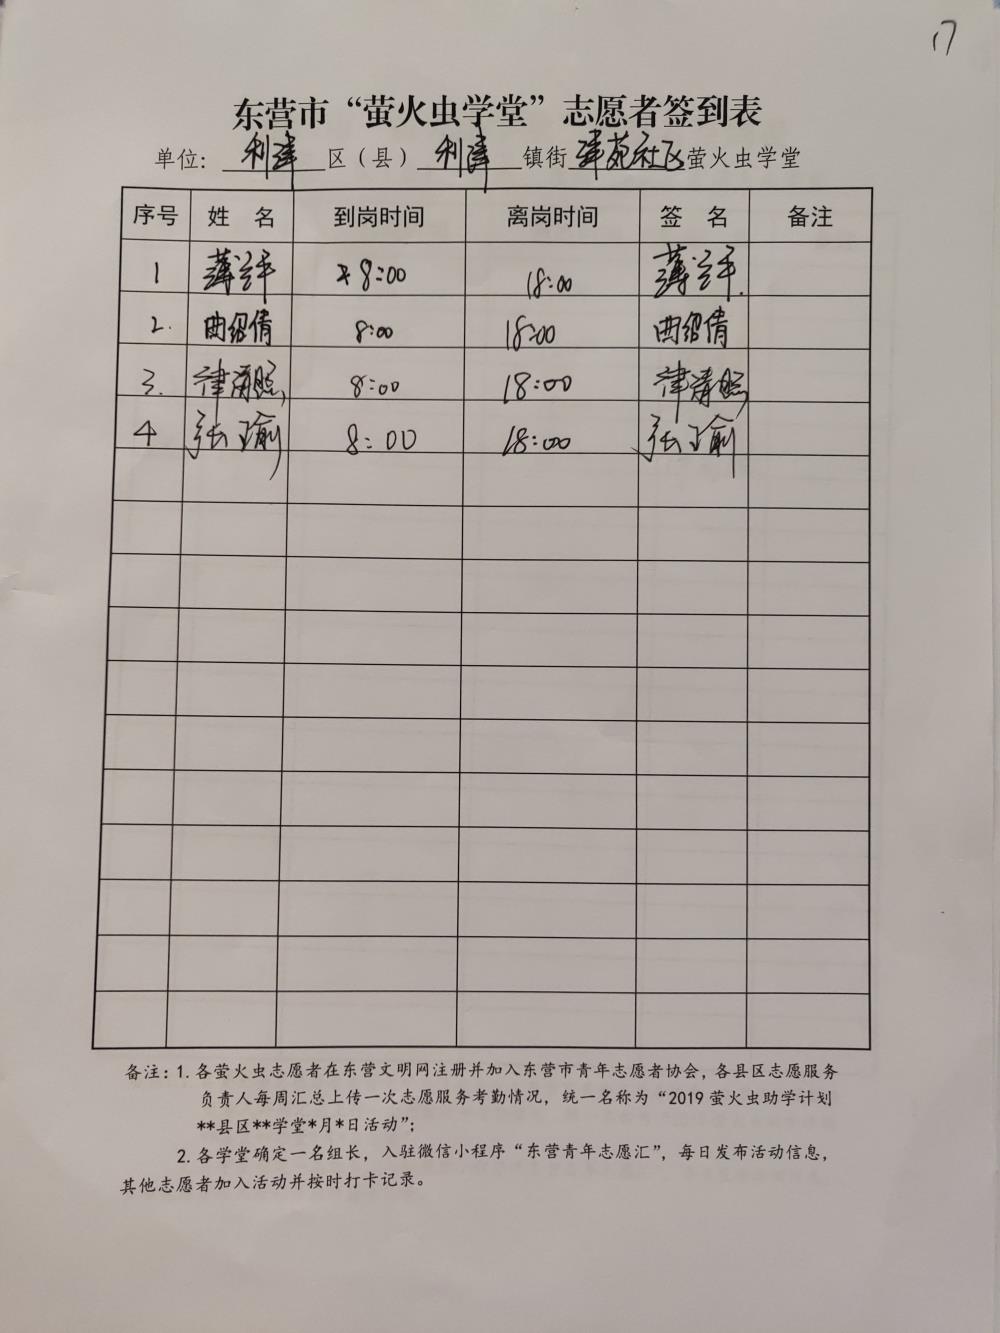 17
东营市“萤火虫学堂”志愿者签到表
单位：利津区（县）利津镇街津苑社区萤火虫学堂
序号 姓 名 到岗时间 离岗时间 签 名 备注
1 薄兰平 8:00 18:00 薄兰平
2. 曲绍倩 8:00 18:00 曲绍倩
3. 8:00 18:00
4 张瑜 8:00 18:00 张瑜
备注：1.各萤火虫志愿者在东营文明网注册并加入东营市青年志愿者协会，各县区志愿服务
负责人每周汇总上传一次志愿服务考勤情况，统一名称为“2019 萤火虫助学计划
**县区**学堂*月*日活动”；
2.各学堂确定一名组长，入驻微信小程序“东营青年志愿汇”，每日发布活动信息，
其他志愿者加入活动并按时打卡记录。